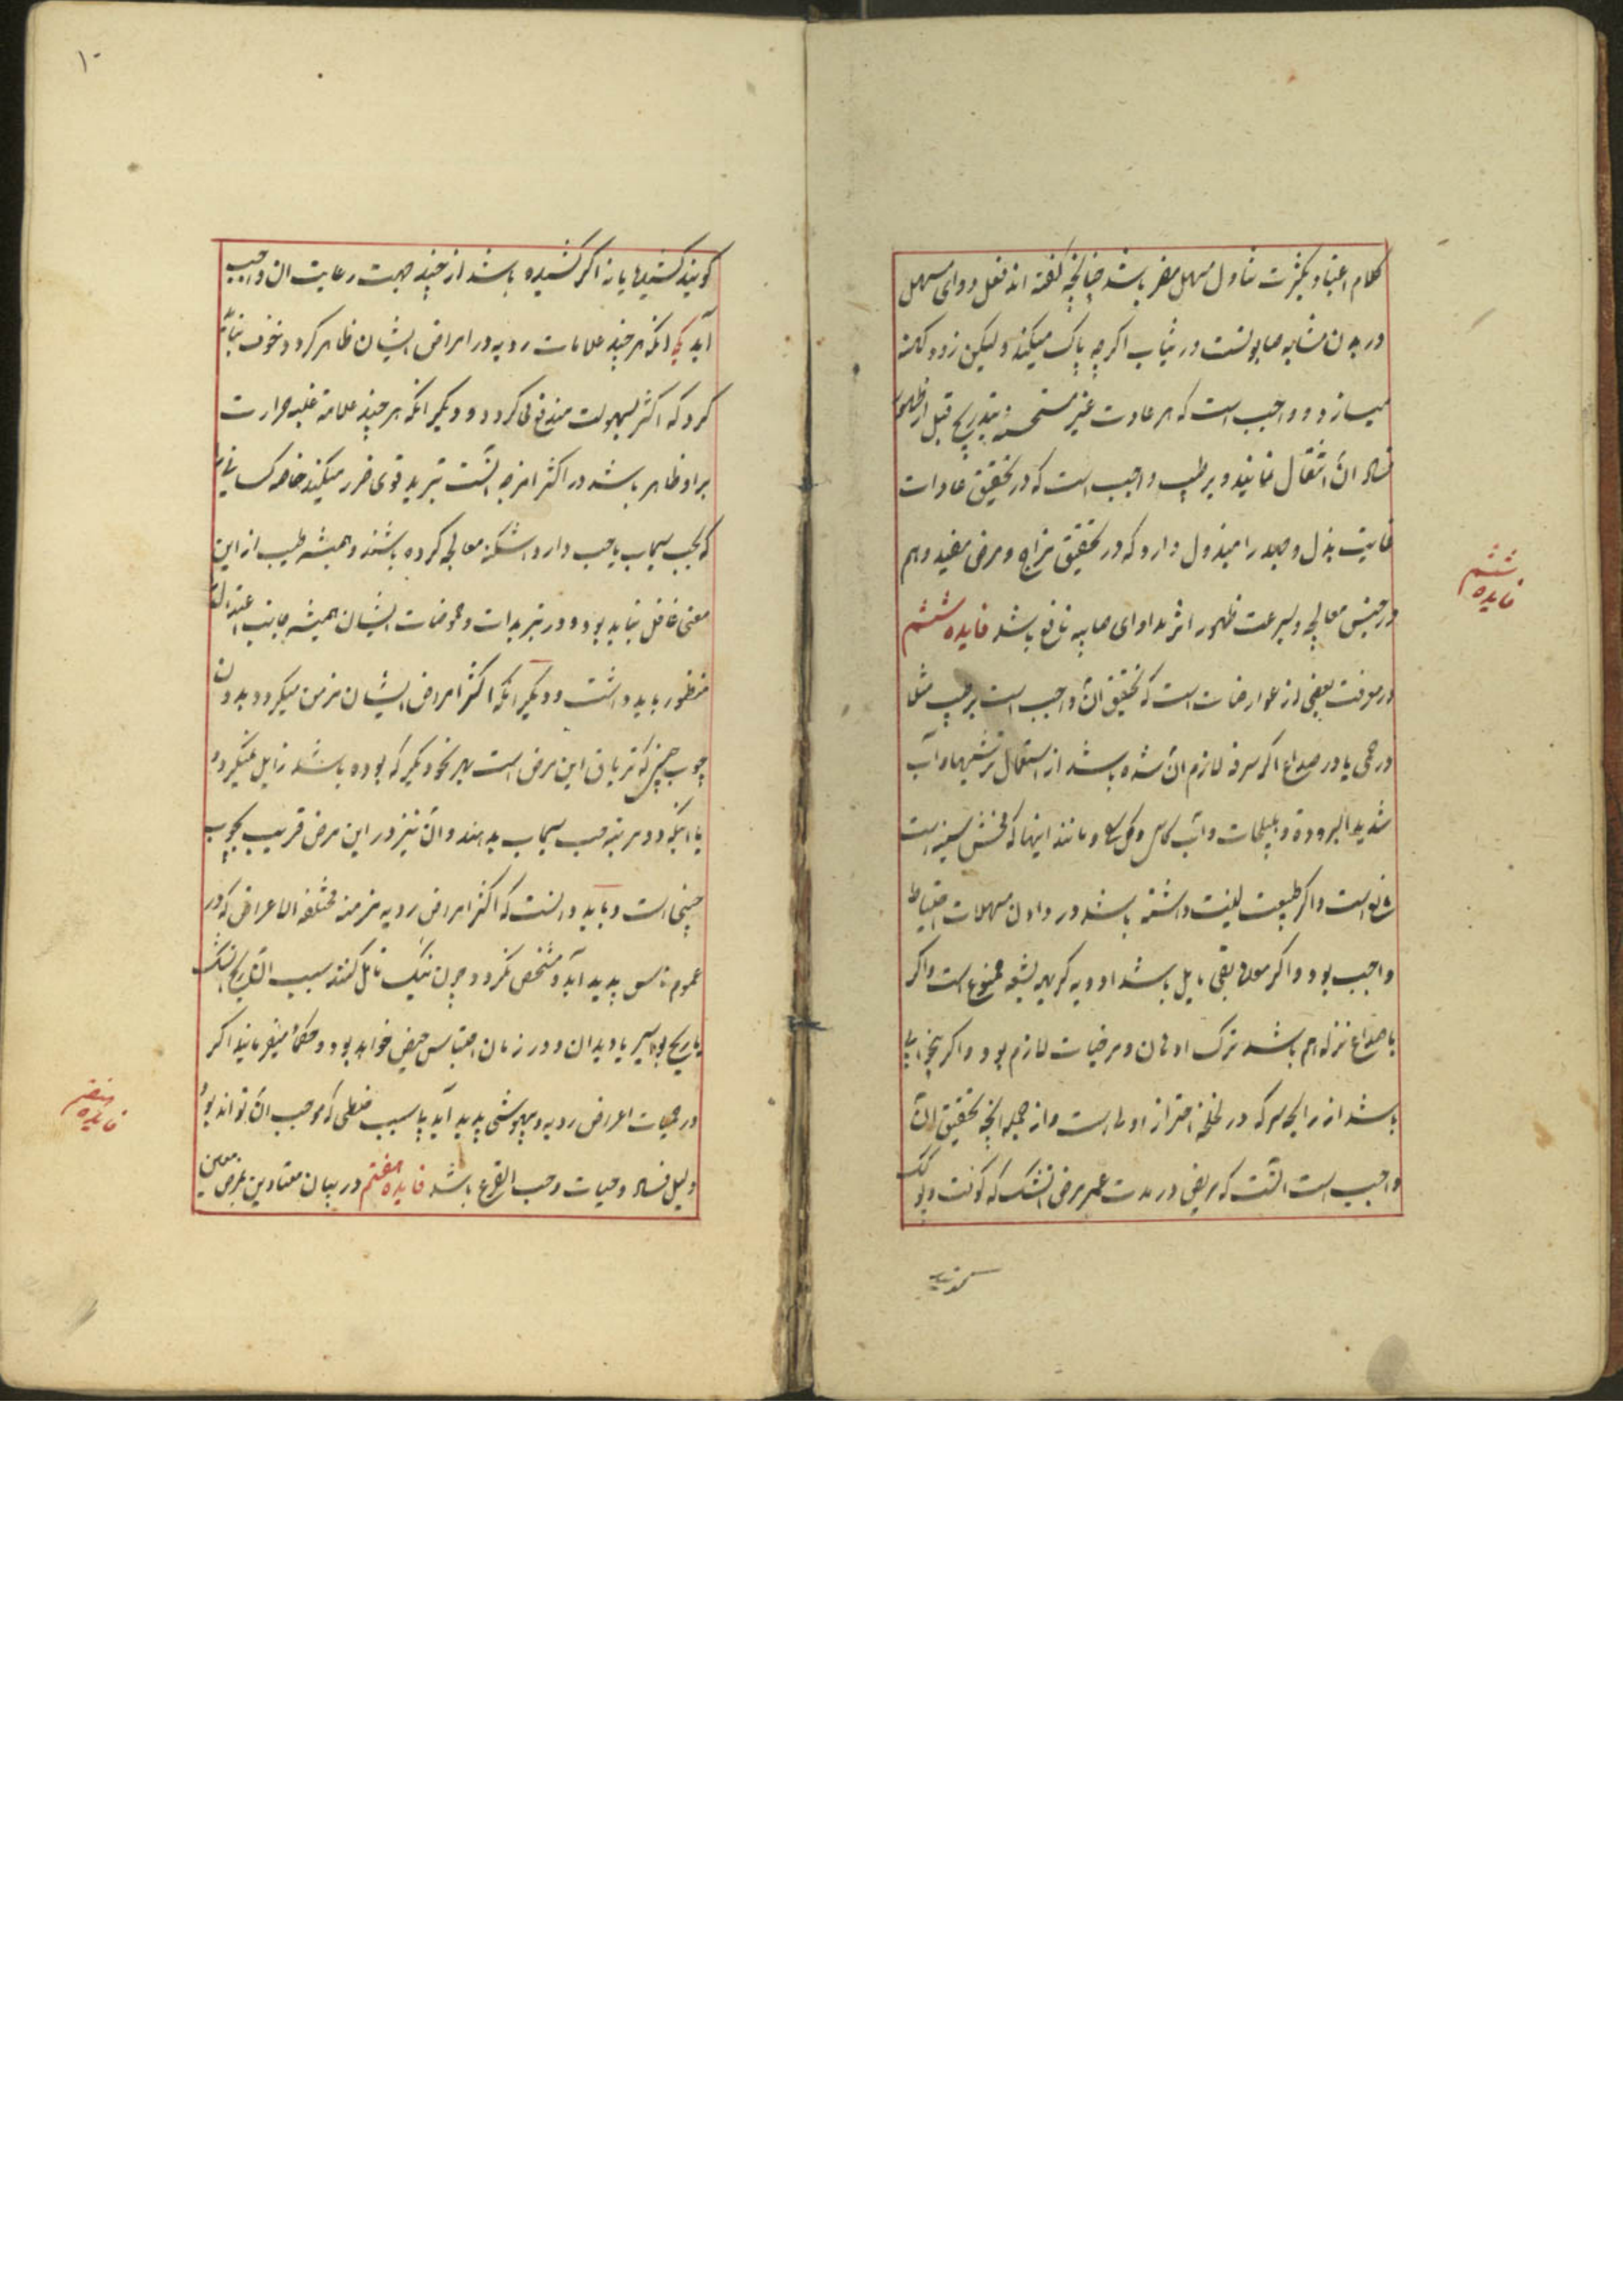 کلام اعتیاد بکثرت تناول مسهل مضر باشد چنانچه گفته اند فعل دوای مسهل
در بدن مشابه صابونست در ثیاب اگرچه پاک میکند ولیکن زود کهنه
میسازد و واجب است که هر عادت غیر مستحسنه بتدریج قبل از ظهور
فساد آن انتقال نمایند و بر طبیب واجب است که در تحقیق عادات
غایت بذل و جهد را مبذول دارد که در تحقیق مزاج و مرض مفید و هم
در حین معالجه و بسرعت ظهور اثر مداوای صایبه نافع باشد فایده ششم
فایده ششم
در معرفت بعضی از عوارضات است که تحقیق آن واجب است بر طبیب مثلا
در حمی یا در صداع اگر سرفه لازم آن شده باشد از استعمال ترشیها و آب
شدید البروده و هلیلجات و آب و مانند اینها که مخشن سینه است
مانع است و اگر طبیعت لینت داشته باشد در دادن مسهلات احتیاط
واجب بود و اگر معده بقی مایل باشد ادویه کریهه بشعه ممنوع است و اگر
با صداع نزله هم باشد ترک ادهان و مرخیات لازم بود و اگر بیخوابی
باشد از رایحه سرکه در لخلخه احتراز اولی است و از جمله آنچه تحقیق آن
واجب است آنست که مریض در مدت عمر مرض آتشک که کوفت و
گویند
۱۰
گویند کشیده یا نه اگر کشیده باشد از چند جهت رعایت آن واجب
آید یکی آنکه هر چند علامات ردیه در امراض ایشان ظاهر گردد خوف نباید
کرد که اکثر بسهولت مندفع گردد و دیگر آنکه هر چند علامة غلبه حرارت
بر او ظاهر باشد در اکثر امزجه آتشک تبرید قوی ضرر میکند خاصه کسانی را
که بحب سیماب یا حب دار اشکنه معالجه کرده باشند و همیشه طبیب از این
معنی غافل نباید بود و در تبریدات و حموضات ایشان همیشه جانب اعتدال
منظور باید داشت و دیگر آنکه اکثر امراض ایشان مزمن میگردد بدون
چوب چینی که تریاق این مرض است بهر نحو دیگر که بوده باشد زایل نمیگردد
یا اینکه دو مرتبه حب سیماب بدهند و آن نیز در این مرض قریب بچوب
چینی است و باید دانست که اکثر امراض ردیه مزمنه مختلفه الاعراض که در
عموم ناس پدید آید و مشخص نگردد چون نیک تامل کنند سبب آن ریح آتشک
یا ریح بواسیر یا دیدان و در زمان احتباس حیض خواهد بود و حکماء میفرمایند اگر
در حمیات اعراض ردیه و بیهوشی پدید آید بی سبب فعلی که موجب آن تواند بود
دلیل فساد و حیات و حب القرع باشد فایده هفتم در بیان معتادین بمرض معین
فایده هفتم